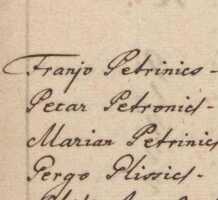 Franjo Petrinics -
Petar Petronics -
Marian Petrinics
Gergo Plissics -